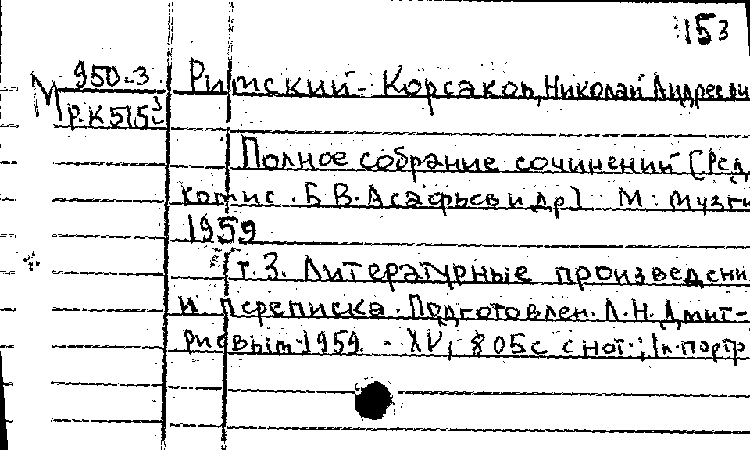 153
950-3 Римский-Корсаков, Николай Андрееви
М Р.К515
Полное собрание сочинений [Ред.
комис. Б.В. Асафьев и др] М: Музги
1959
т. 3. Литературные произведени
и переписка. Подготовлен. Л.Н. Дмит-
риевым 1959. - XV, 805с с нот.; 1л портр